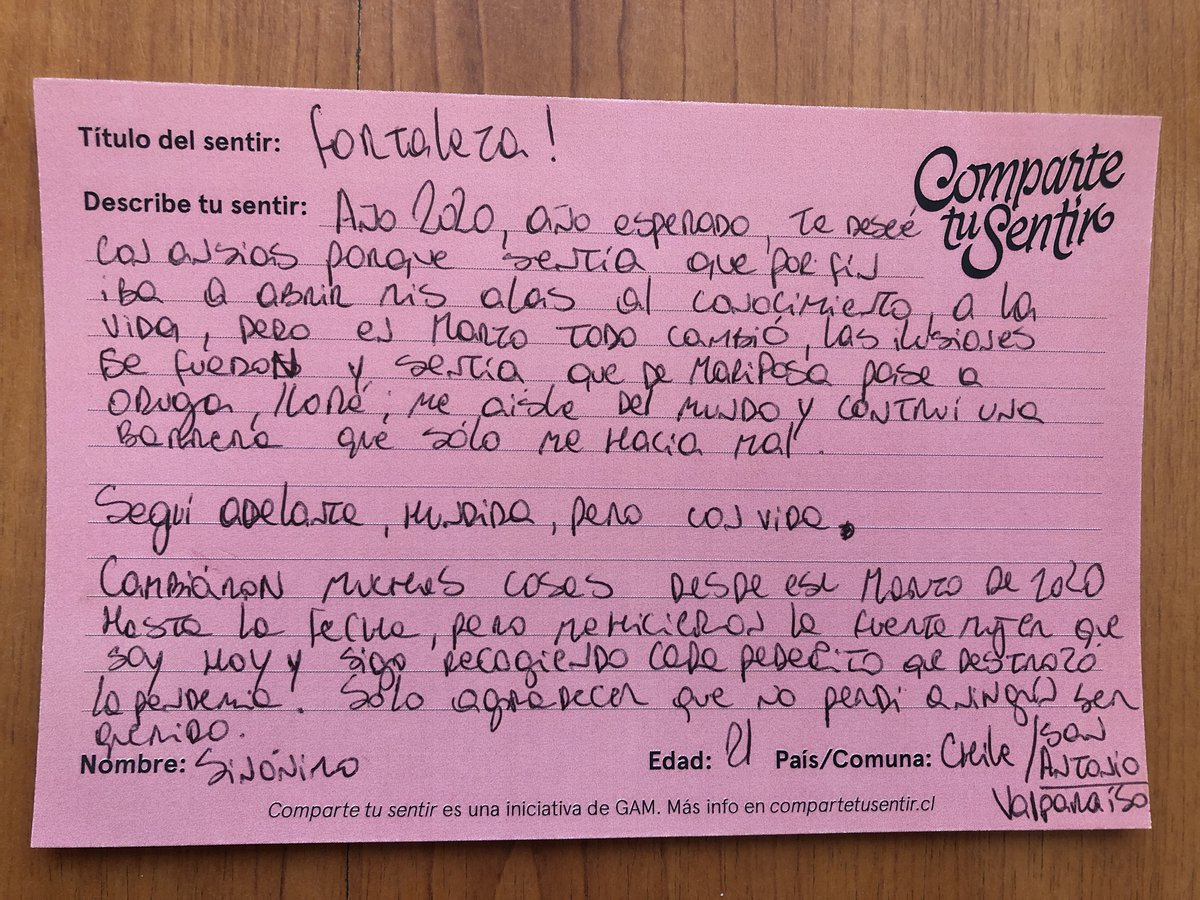 Título del sentir: Fortaleza!
Comparte
tu Sentir
Describe tu sentir: Año 2020, año esperado, te deseé
con ansias porque sentía que por fin
iba a abrir mis alas al conocimiento, a la
vida, pero en Marzo todo cambió, las ilusiones
se fueron y sentía que de mariposa pase a
oruga, lloré, me aisle del mundo y contruí una
barrera qué sólo me hacia mal.
Seguí adelante, hundida, pero con vida.
Cambiáron muchas cosas desde ese Marzo de 2020
hasta la fecha, pero me hicieron la fuerte mujer que
soy hoy y sigo recogiendo cada pedacito que destrozó
la pandemia. Sólo agradecer que no perdi a ningún ser
querido.
Nombre: Sinónimo Edad: 21 País/Comuna: Chile / San
Antonio
Valparaíso
Comparte tu sentir es una iniciativa de GAM. Más info en compartetusentir.cl